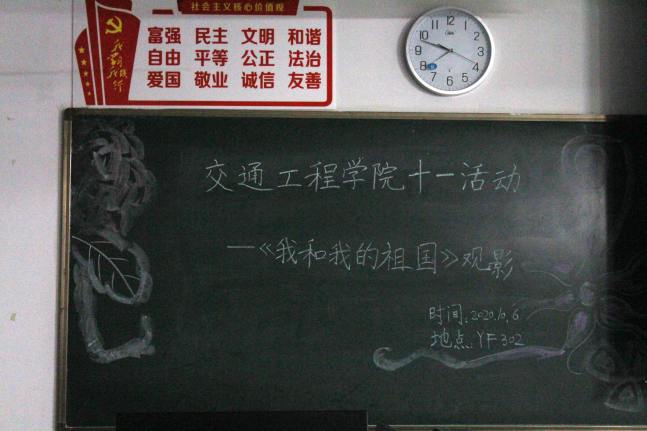 社会主义核心价值观
富强 民主 文明 和谐
自由 平等 公正 法治
爱国 敬业 诚信 友善
12
1
2
3
4
5
6
7
8
9
10
11
交通工程学院十一活动
—《我和我的祖国》观影
时间:2020.10.6
地点:YF302